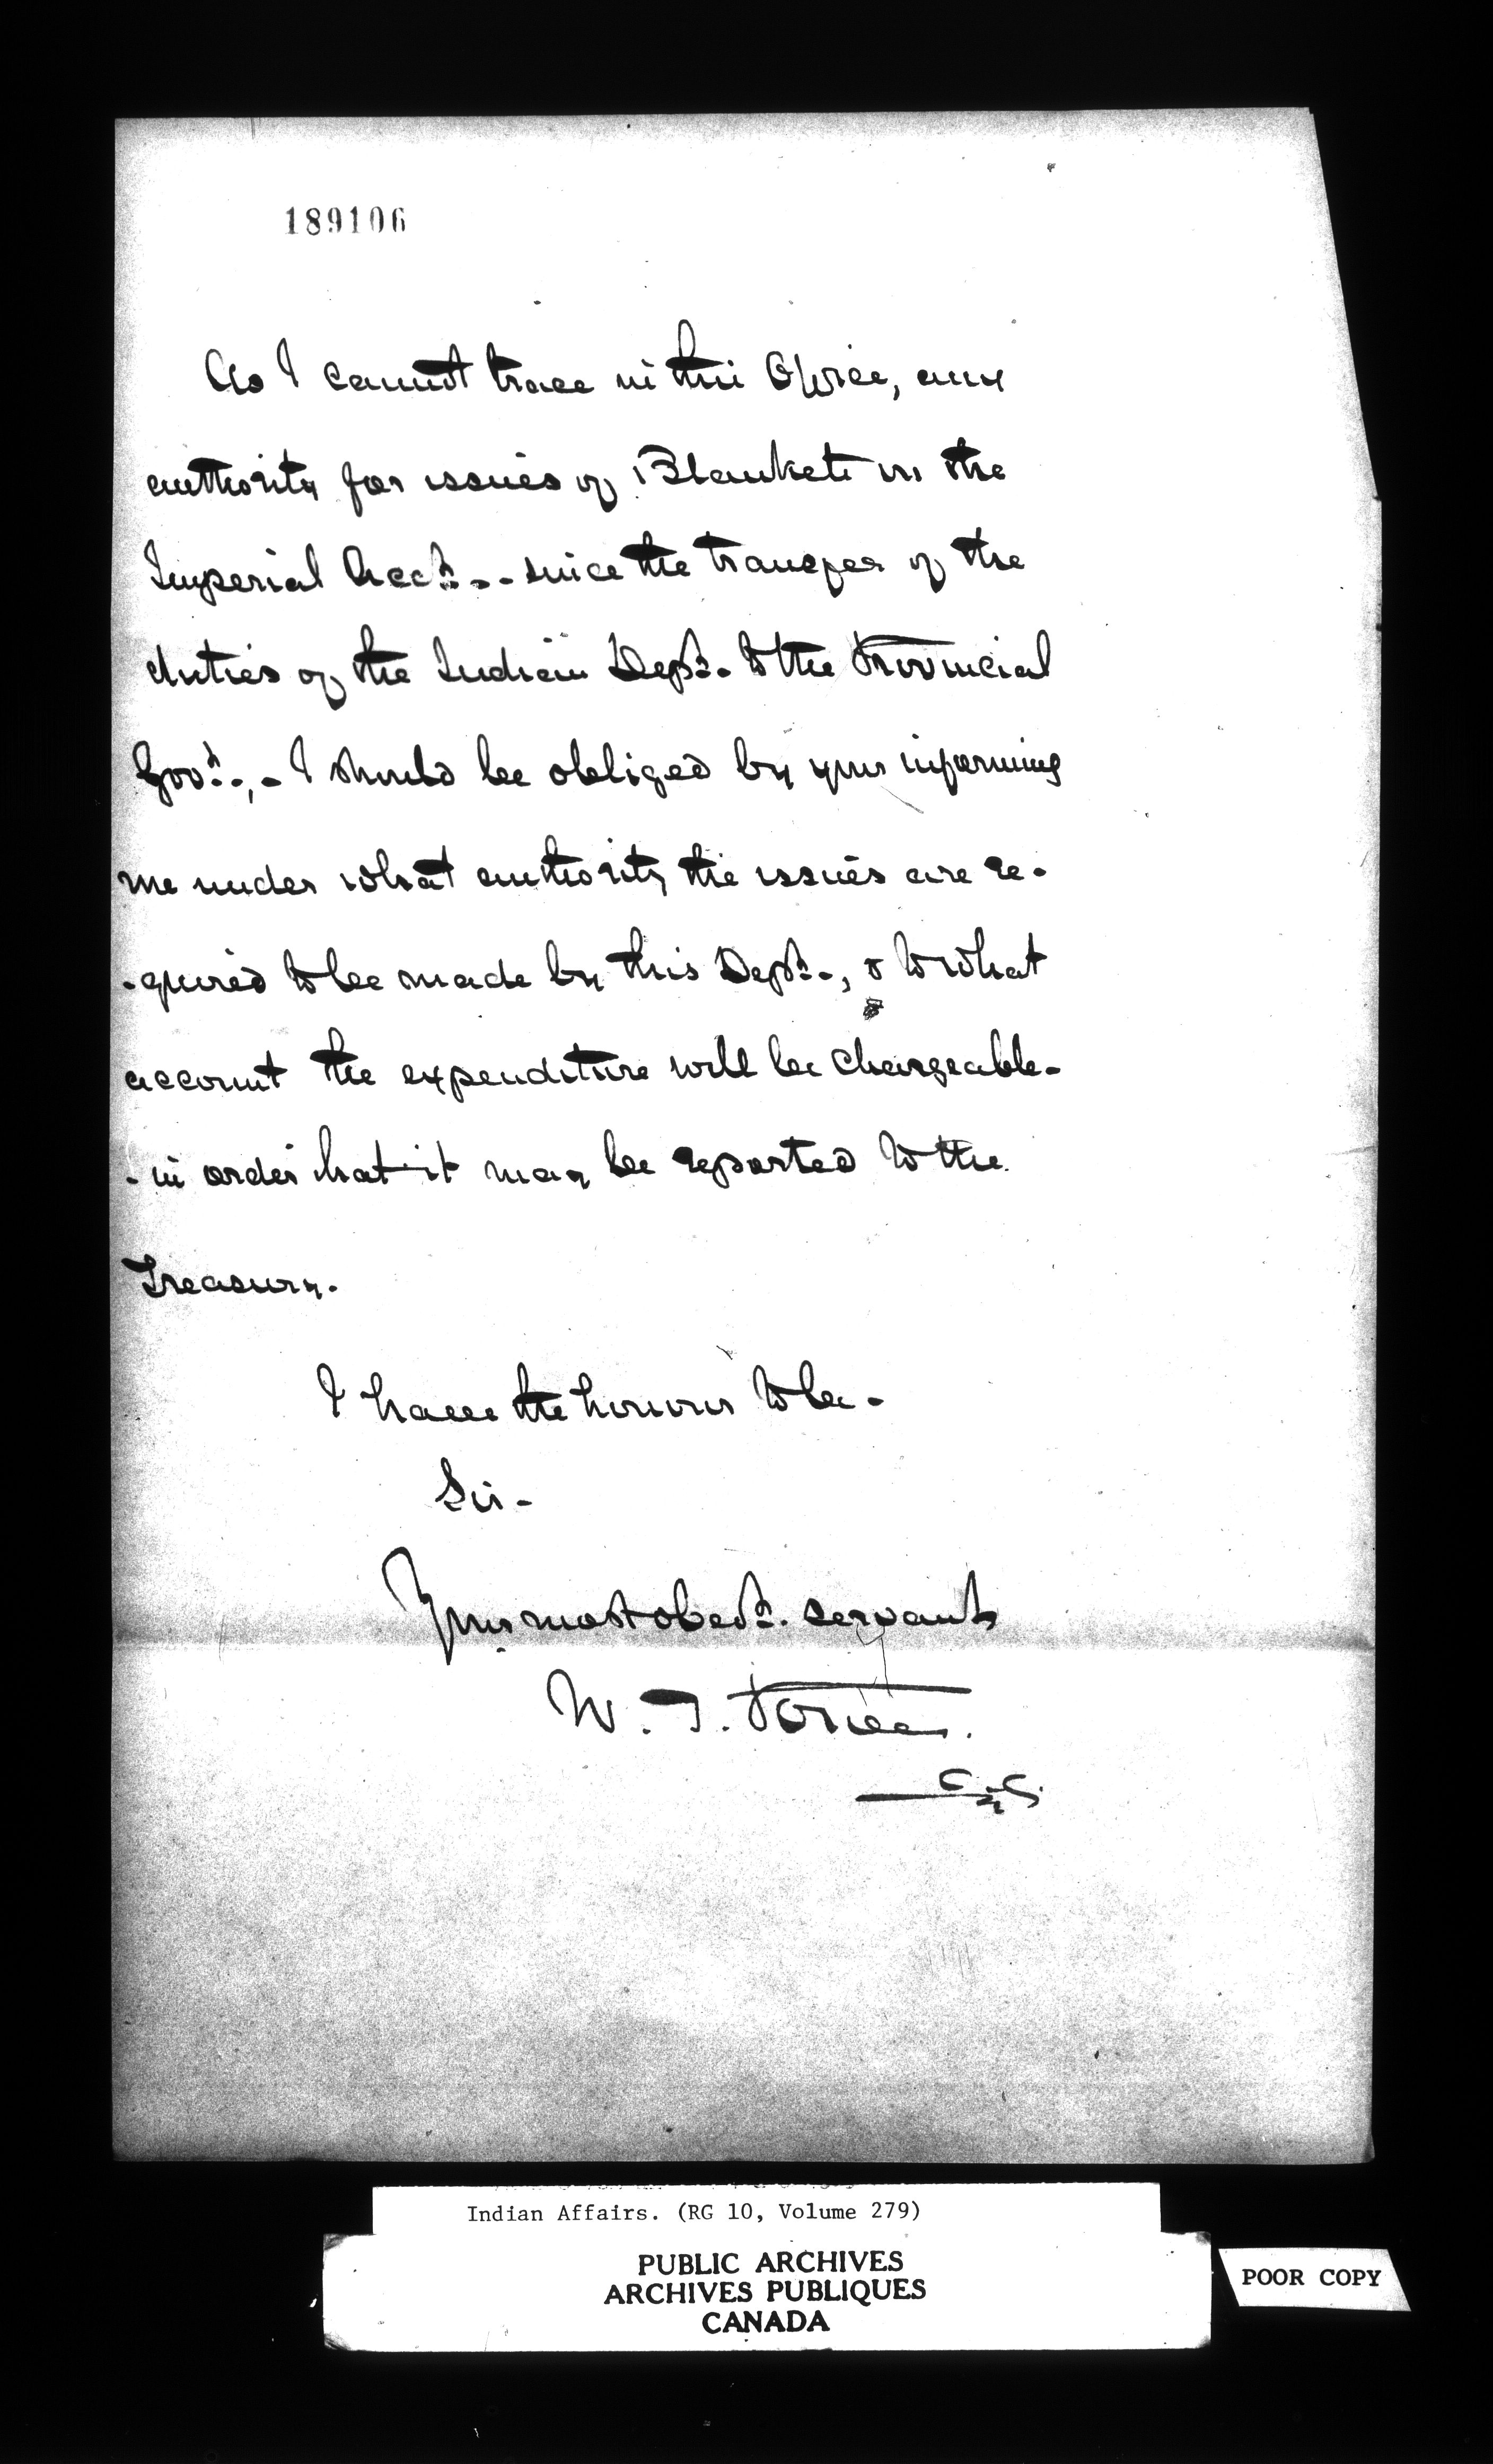 189106
As I cannot trace in this Office, any
authority for issues of Blankets on the
Imperial Acct.. - since the transfer of the
duties of the Indian Dept. to the Provincial
Govt., - I should be obliged by your informing
me under what authority the issues are re-
-quired to be made by this Dept., & to what
account the expenditure will be chargeable -
- in order that it may be reported to the
Treasury.
I have the honour to be -
Sir -
Your most obedt. servant
W. T.
Indian Affairs. (RG 10, Volume 279)
PUBLIC ARCHIVES
ARCHIVES PUBLIQUES
CANADA
POOR COPY